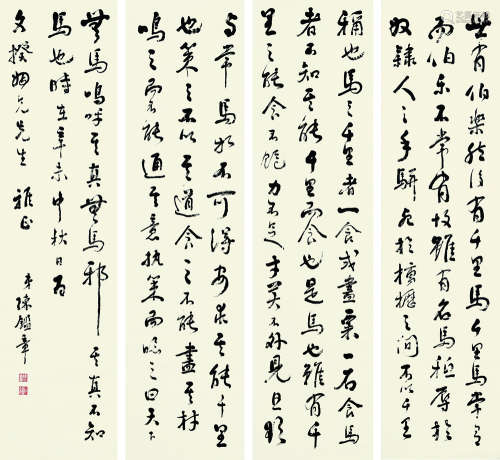 世有伯樂然後有千里馬常有
而伯樂不常有故雖有名馬秪辱於
奴隸人之手駢死於槽櫪之間不以千里
稱也馬之千里者一食或盡粟一石食馬
者不知其能千里而食也是馬也雖有千
里之能食不飽力不足才美不外見且欲
与常馬等不可得安求其能千里
也策之不以其道食之不能盡其材
鳴之而不能通其意執策而臨之曰天下
無馬嗚呼其真無馬邪其真不知
馬也時在辛未中秋日為
文揆姻兄先生 雅正
弟陳鑑章